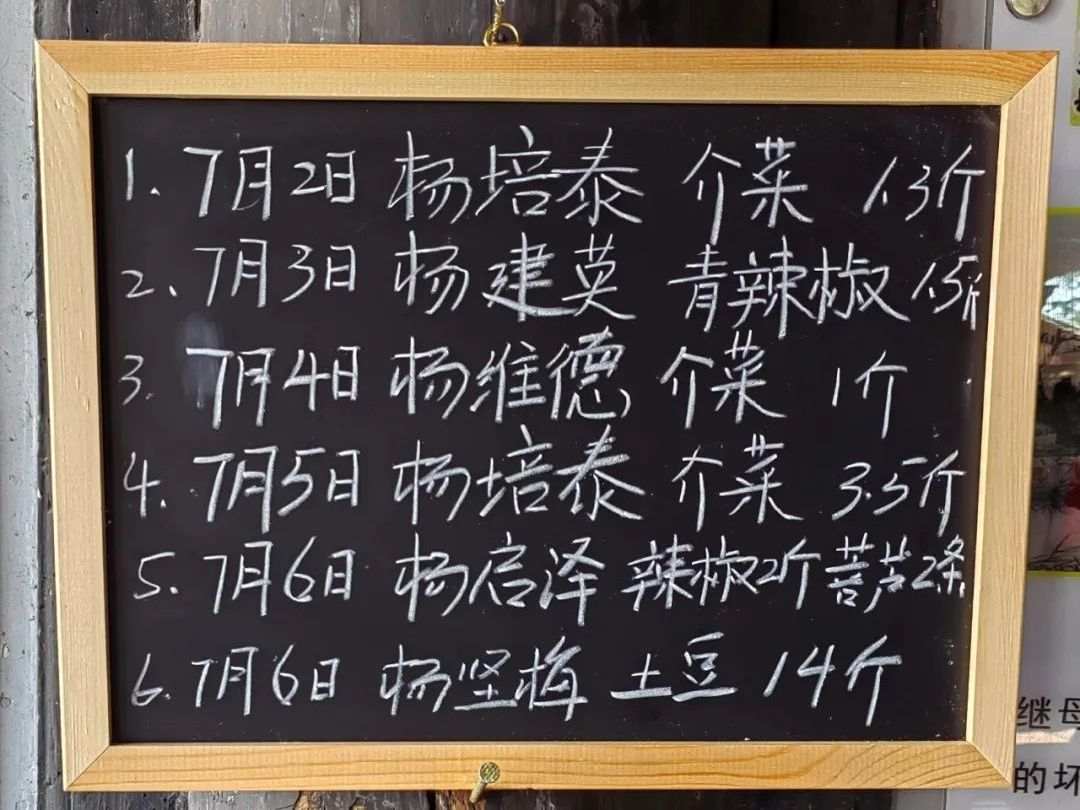 1. 7月2日 杨培泰 介菜 1.3斤
2. 7月3日 杨建英 青辣椒 1.5斤
3. 7月4日 杨维德 介菜 1斤
4. 7月5日 杨培泰 介菜 3.5斤
5. 7月6日 杨启泽 辣椒2斤 苦芦2条
6. 7月6日 杨坚梅 土豆 14斤
继母
的坏